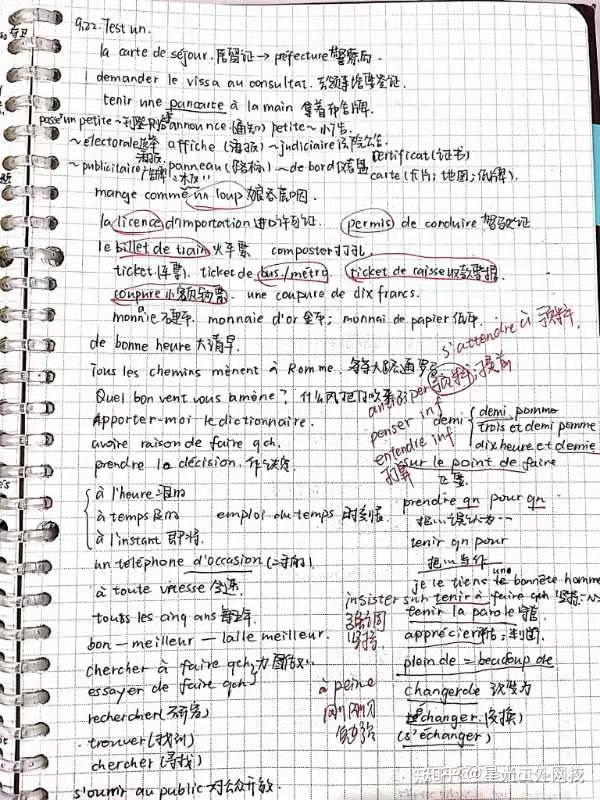 9.22. Test un.
la carte de séjour. 居留证 → préfecture 警察局.
demander le vissa au consultat. 去领事馆要签证.
tenir une pancarte à la main 拿着布告牌.
passe un petite ~ announce (通知) petite ~ 小广告.
~ électorale affiche (海报) ~ judiciaire 法院公告
~ publicitaire 广告牌 panneau (路标) ~ de bord 仪表盘
certificat (证书)
carte (卡片; 地图; 纸牌).
mange comme un loup 狼吞虎咽.
la licence d'importation 进口许可证. permis de conduire 驾驶证
le billet de train 火车票 composter 打孔.
ticket (车票). ticket de bus/métro. ticket de caisse 收款票据.
coupure 小额钞票. une coupure de dix francs.
monnaie 硬币. monnaie d'or 金币; monnai de papier 纸币.
s'attendre à
de bonne heure 大清早.
Tous les chemins mènent à Romme. 条条大路通罗马
Quel bon vent vous amène? 什么风把你吹来了
anticiper 提前
Apporter-moi le dictionnaire.
penser inf
avoire raison de faire qch.
entendre inf
打算
prendre la décision. 作决定
demi
demi pomme
trois et demi pomme
dix heure et demie
sur le point de faire
正要
à l'heure 准时
à temps 及时
à l'instant 即将.
emploi du temps 时刻表
prendre qn pour qn
把…误认为…
tenir qn pour
把…当作
je le tiens une bonnête homme
un téléphone d'occasion (二手的).
à toute vitesse 全速
insister sur
强调
坚持
tenir à faire qch 坚持
tenir la parole 守信
toutes les cinq ans 每五年
bon — meilleur — la/le meilleur.
apprécier 评估; 判断.
plein de = beaucoup de
chercher à faire qch 力图做…
essayer de faire qch
à peine
刚刚
changer de 改变为
rechercher (研究)
échanger (交换)
(s'échanger)
trouver (找到)
chercher (寻找)
s'ouvrir au public 对公众开放.
知乎 @星光正处网校